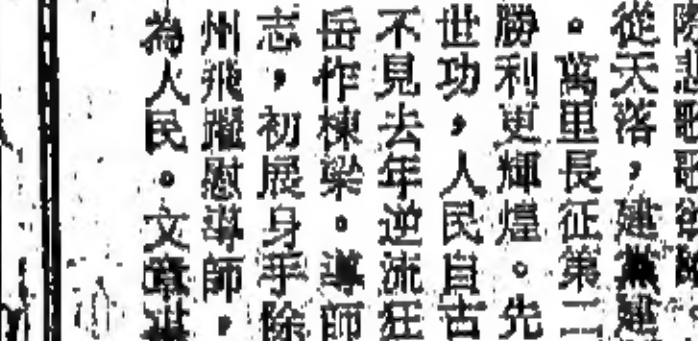 悲歌歌欲
從天落，建黨建
。萬里長征第二
勝利更輝煌。先
世功，人民自古
不見去年逆流狂
岳作棟梁。導師
志，初展身手除
州飛躍慰導師，
為人民。文章